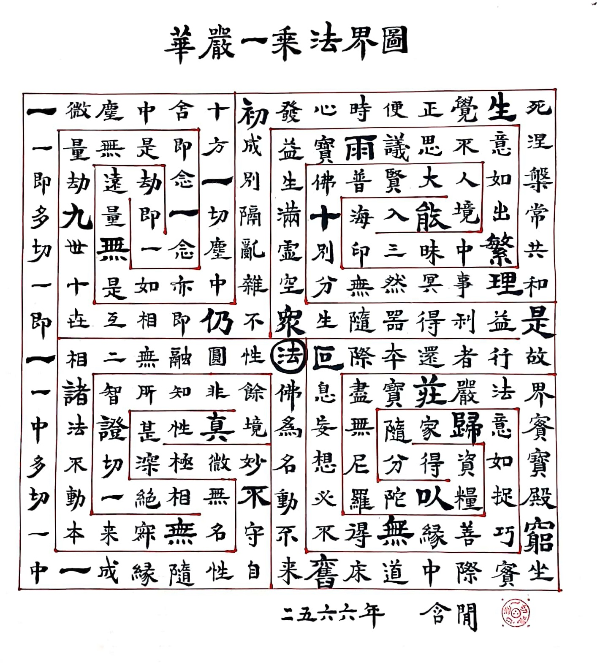 華嚴一乘法界圖
一微塵中含十初發心時便正覺生死
一量無是即方成益寶雨議思不意涅
即劫遠劫念一別生佛普賢大人如槃
多九量即一切隔滿十海入能境出常
切世無一念塵亂虛別印三昧中繁共
一十是如亦中雜空分無然冥事理和
即世互相即仍不衆生隨器得利益是
一相二無融圓性法叵際本還者行故
一諸智所知非餘佛息盡寶莊嚴法界
中法證甚性真境爲妄無隨家歸意實
多不切深極微妙名想尼分得資如寶
切動一絕相無不動必羅陀以糧捉殿
一本來寂無名守不不得無緣善巧窮
中一成緣隨性自來舊床道中際實坐
二五六六年 含閒